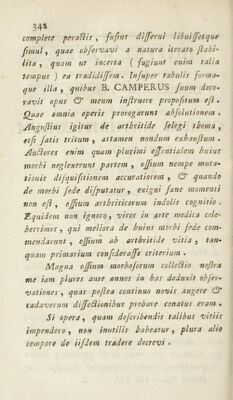 342
complete peractis, fusius disserui libuissetque
simul, quae observavi a natura iterato stabi-
lita, quam ut incerta ( fugiunt enim talia
tempus ) ea tradidissem. Insuper tabulis forma-
que illa, quibus B. CAMPERUS suum deco-
ravit opus & meum instruere propositum est.
Quae omnia operis prorogarunt absolutionem.
Angustius igitur de arthritide selegi thema,
etsi satis tritum, attamen nondum exhaustum.
Auctores enim quam plurimi essentialem huius
morbi neglexerunt partem, ossium nempe muta-
tionis disquisitionem accuratiorem, & quando
de morbi sede disputatur, exigui sane momenti
non est, ossium arthriticorum indolis cognitio.
Equidem non ignoro, viros in arte medica cele-
berrimos, qui meliora de huius morbi sede com-
mendarunt, ossium ab arthritide vitia, tan-
quam primarium considerasse criterium.
Magna ossium morbosorum collectio nostra
me iam plures ante annos in has deduxit obser-
vationes, quas postea continuo novis augere &
cadaverum dissectionibus probare conatus eram.
Si opera, quam describendis talibus vitiis
impendero, non inutilis habeatur, plura alio
tempore de iisdem tradere decrevi.